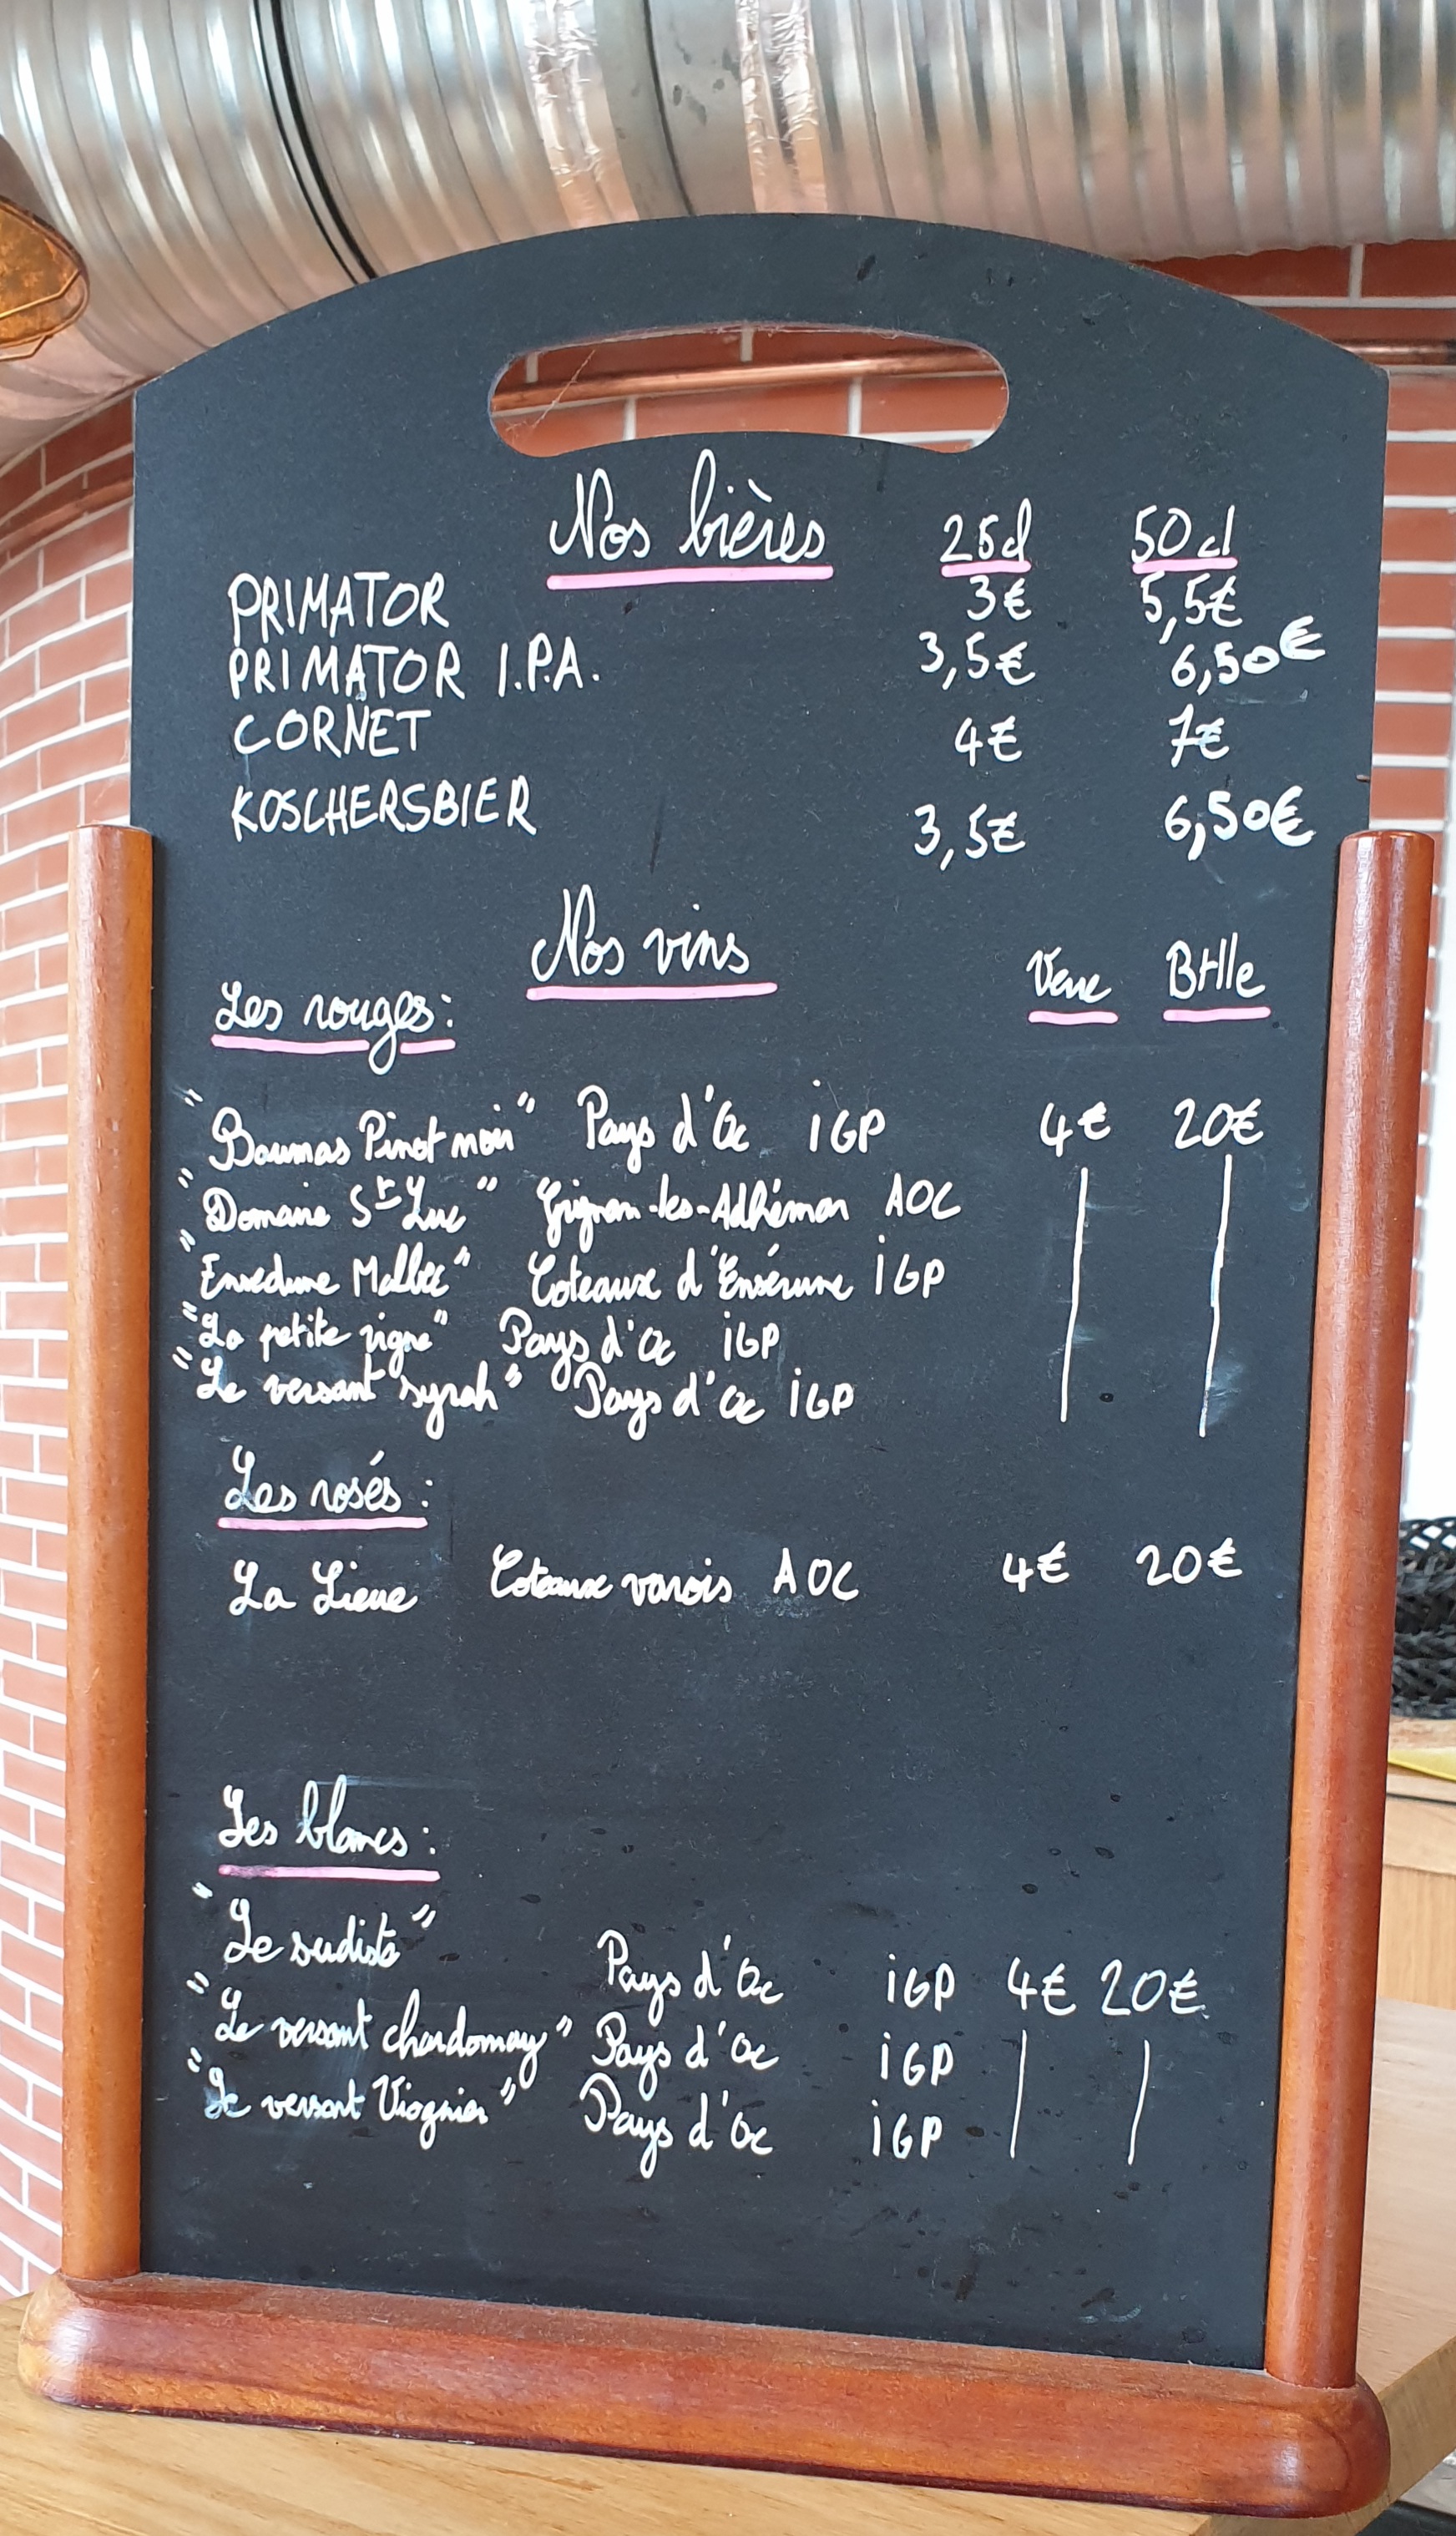 Nos bières 25cl 50cl
PRIMATOR 3€ 5,5€
PRIMATOR I.P.A. 3,5€ 6,50€
CORNET 4€ 7€
KOSCHERSBIER 3,5€ 6,50€
Nos vins Verre Btlle
Les rouges:
"Baumas Pinot noir" Pays d'Oc IGP 4€ 20€
"Domaine St Luc" Grignan-les-Adhémar AOC
"Ensedune Malbec" Coteaux d'Ensérune IGP
"La petite vigne" Pays d'Oc IGP
"Le versant syrah" Pays d'Oc IGP
Les rosés:
La Lieue Coteaux varois AOC 4€ 20€
Les blancs:
"Le sudiste" Pays d'Oc IGP 4€ 20€
"Le versant chardonnay" Pays d'Oc IGP
"Le versant Viognier" Pays d'Oc IGP